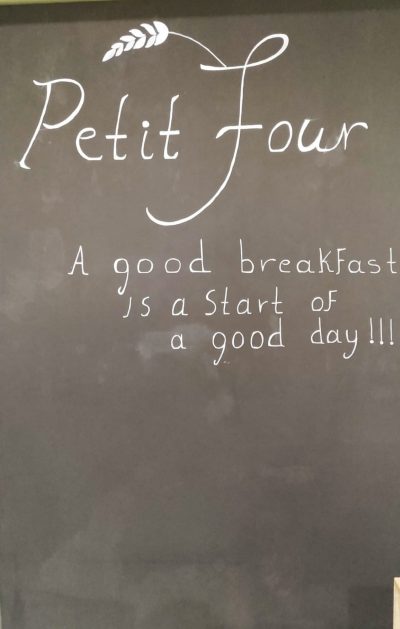 Petit Four
A good breakfast
is a Start of
a good day!!!